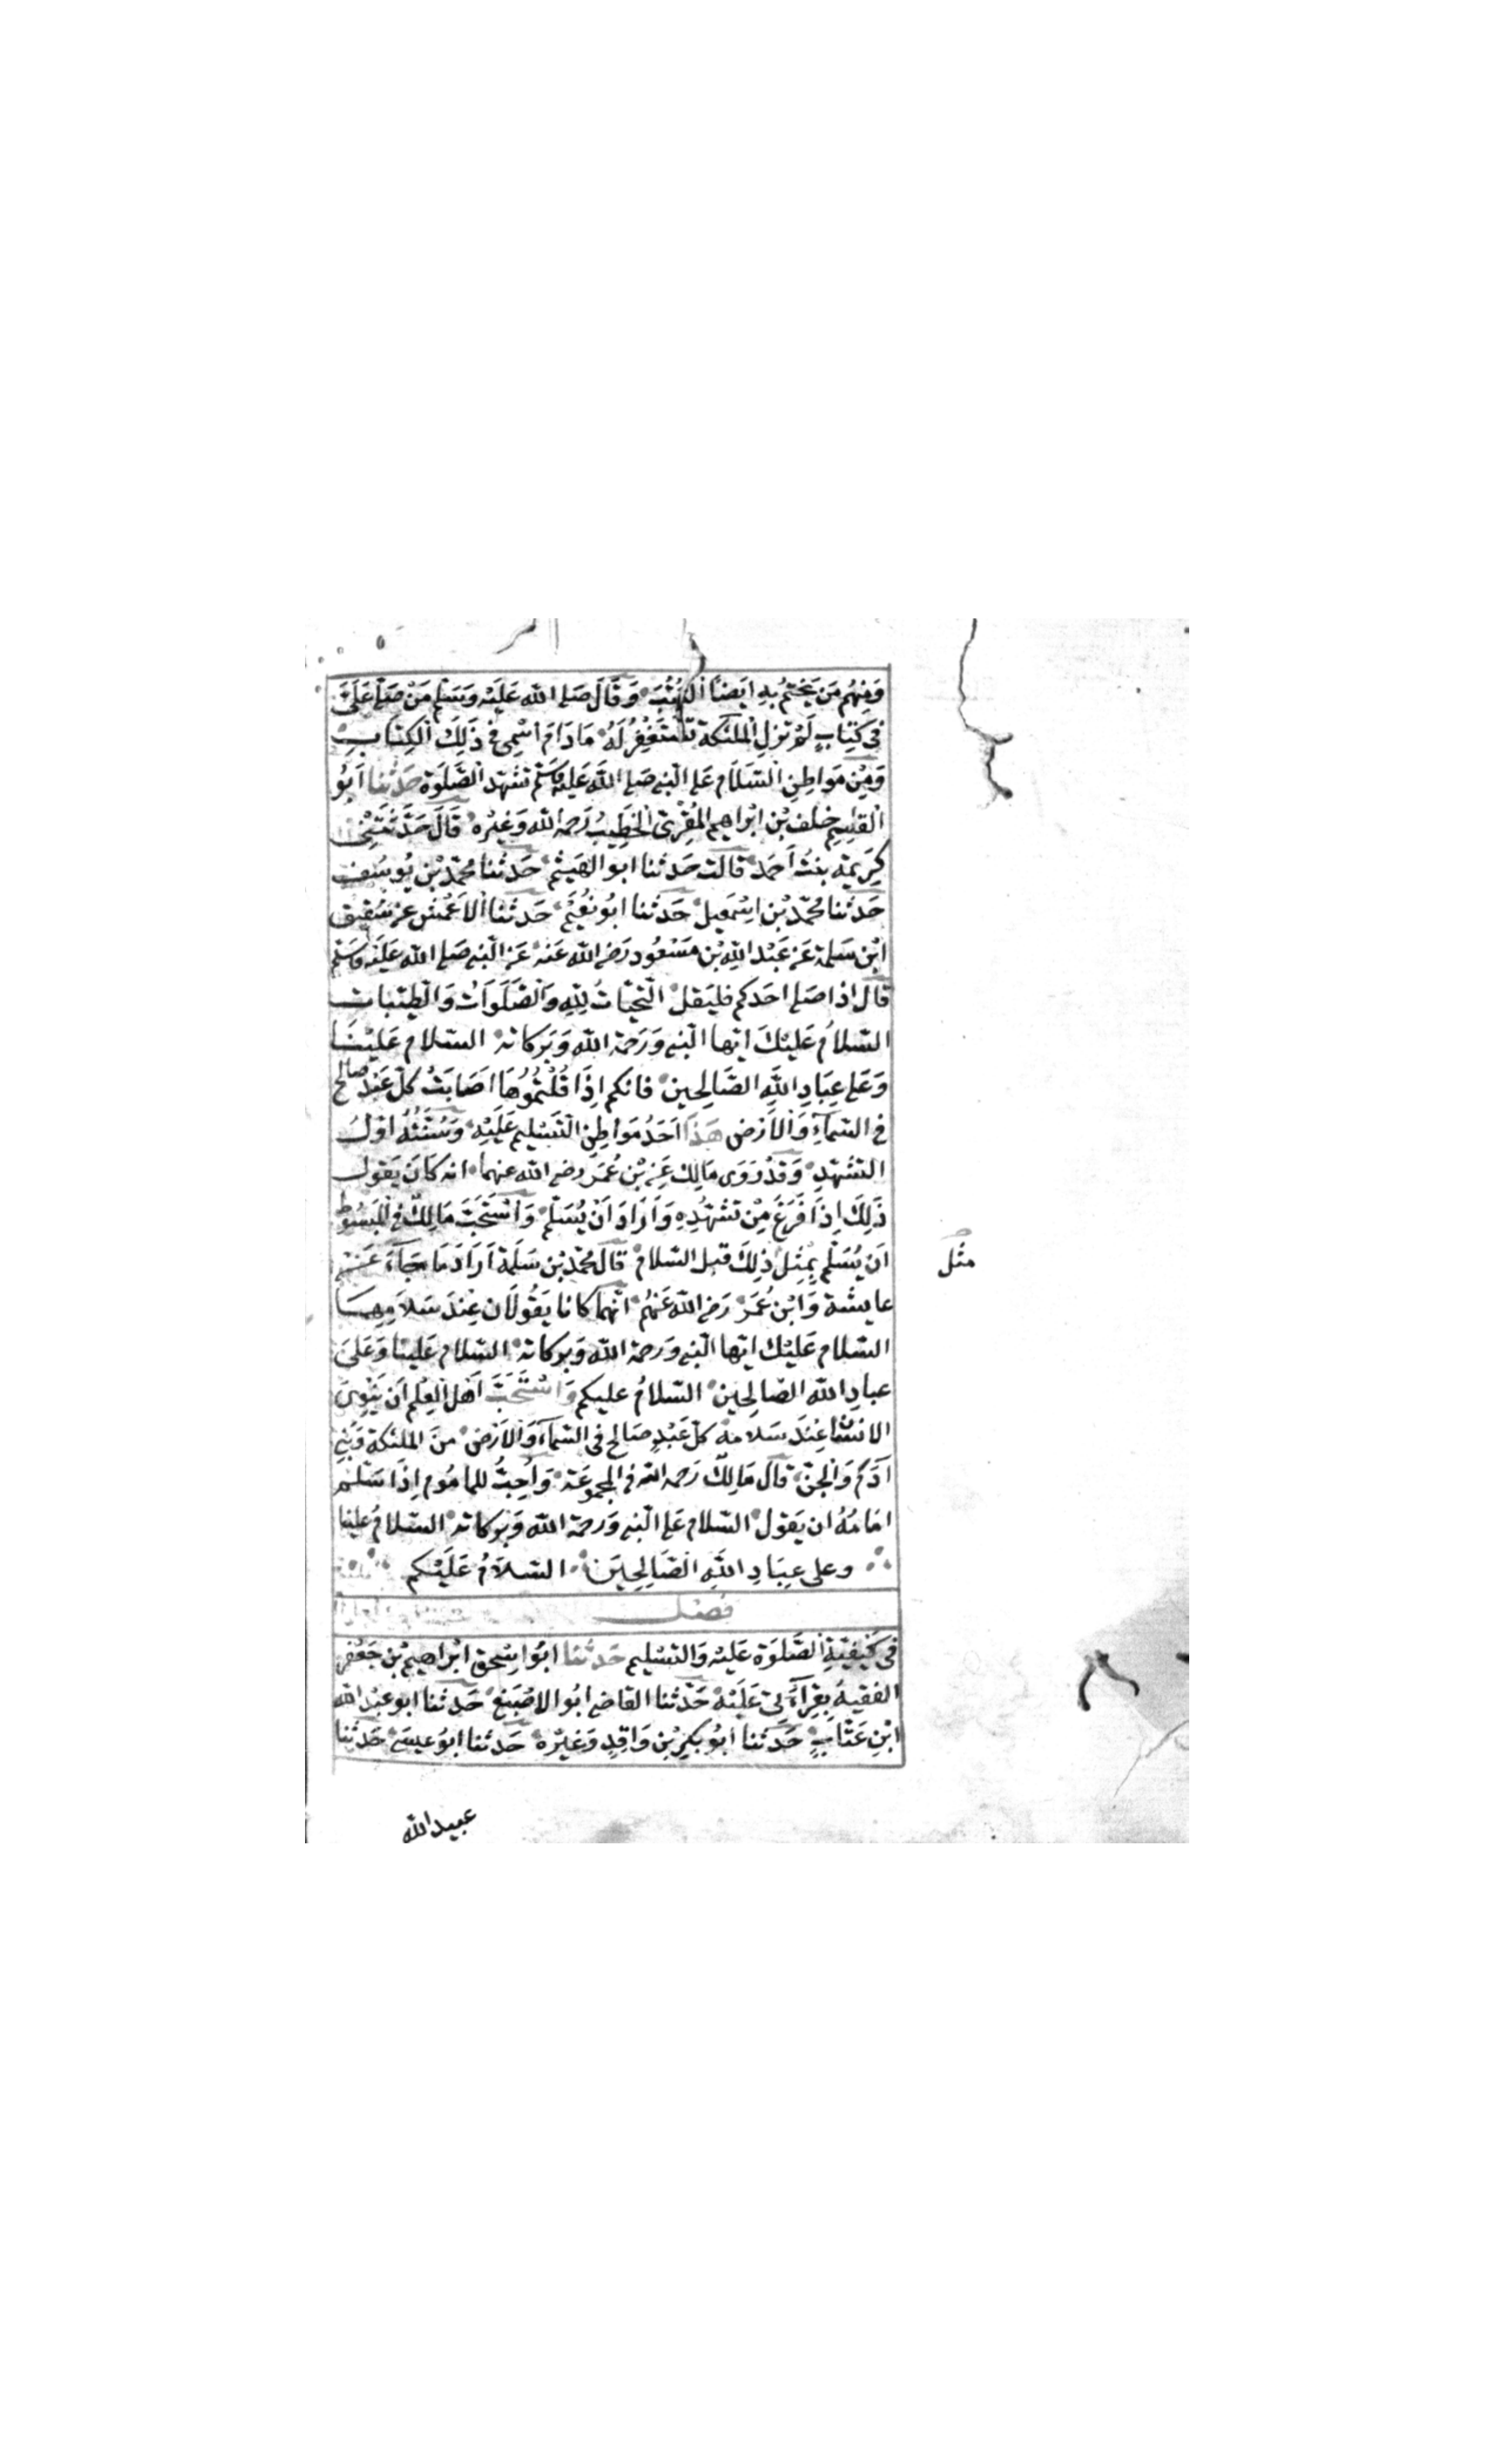 وَمِنْهُم مَن يَخْتِمُ بِهِ ايَضًا الكُتُبَ وَقَالَ صَلى الله عَليْه وَسَلم مَنْ صَلى عَلَىَّ
فى كِتِابٍ لَمْ تزلِ الْملئكة تَسْتَغْفِرُ لَهُ مَا دَامَ اسْمِى فِى ذَلِكَ الكِتَابِ
وَمِنْ مَوَاطِنِ السَلَام عَلى النبى صَلى الله عَليْه وَسَلم تشهّد الصَّلَوة حَدثنا ابُو
القٰسِم خلف بْن ابْراهِيم المُقرِئ الخطِيبُ رَحمه الله وَغيْرُه قَالَ حَدَّثَتْنى
كرَيمَة بنتُ اَحمَد قالت حَدثنا ابو الهَيثم حَدثنا محمّد بْن يُوسُف
حَدثنا محمّد بْن اِسْمٰعيل حَدثنا ابُو نعُيَمْ حَدثنا الاَعْمش عَن شقِيق
ابْن سَلمة عَن عَبْد اللهِ بْن مَسْعُود رَضى الله عَنه عَن النبى صَلى الله عَليْه وَسَلم
قال اذا صَلى احَدكم فليَقل التحِيّاتُ لِلّهِ وَالصَّلَوَاتُ وَالطيبات
السَّلامُ عَليْكَ ايّها النبى وَرَحمة الله وَبَركاته السَلام عَليْنَا
وَعَلى عِبَادِ اللَّهِ الصَّالِحين فانكم اذَا قُلْتمُوُهَا اَصَابَتْ كلّ عَبْدٍ صالح
فى السّمآءِ وَالاَرْض هَذَا اَحَدُ مَوَاطِنِ التَسْليم عَلَيْهِ وَسُنّتُهُ اوّلَ
التشهّدِ وَقدْ رَوَى مَالِك عَن بْن عُمَر رضى الله عنهما انه كانَ يَقول
ذَلِكَ اِذَا فَرَغَ مِنْ تشهّدِهِ وَاَرَادَ اَنْ يُسَلّم وَاسْتَحَبَّ مَالِكٌ فى المَبسُوط
اَن يُسَلّم بِمِثل ذلِكَ قبل السَّلام قال محمّد بْن سَلَمَة اَرَادَ مَا جَآءَ عَن
مثل
عايشة وَابْن عُمَر رَضى الله عَنْهُم انّهما كانا يَقُولَان عِندَ سَلاَمِهِمَا
السَّلام عَليْك ايّها النبى وَرَحمة الله وَبَركاته السَّلام عَلينا وَعَلىَ
عبادِ الله الصَالِحِين السَّلامُ عليكم وَاسْتَحَبَّ اَهل العِلم اَن يَنْوىَ
الانسْان عِندَ سَلامه كلّ عَبْدٍ صَالح فى السّمآءِ وَالاَرْض منَ الملئكة وَبَنى
آدَم وَالجنّ قال مَالِكٌ رَحمه الله فى المجموعَة وَاُحِبُّ للمامُوم اِذَا سَلم
امَامُهُ ان يَقول السّلام عَلى النبى وَرَحمة الله وَبَركاته السّلامُ عَلينا
وعلى عِبَادِ اللَّهِ الصَّالِحِينَ السَّلاَمُ عَلَيْكم
فصل
فى كَيْفِيّةِ الصَّلَوة عَليْه وَالتسْليم حَدثنا ابُو اِسْحٰق ابْراهِيم بْن جَعْفر
الفقيهُ بقرِآءَتى عَلَيْه حَدّثنا القاضى ابُو الاصْبَغ حَدثنا ابو عبْد الله
ابْن عَتّابٍ حَدثنا ابُو بَكرِ بْن وَاقِدٍ وَغيْرُه حَدثنا ابُو عِيسَى حَدثنا
عبيد الله